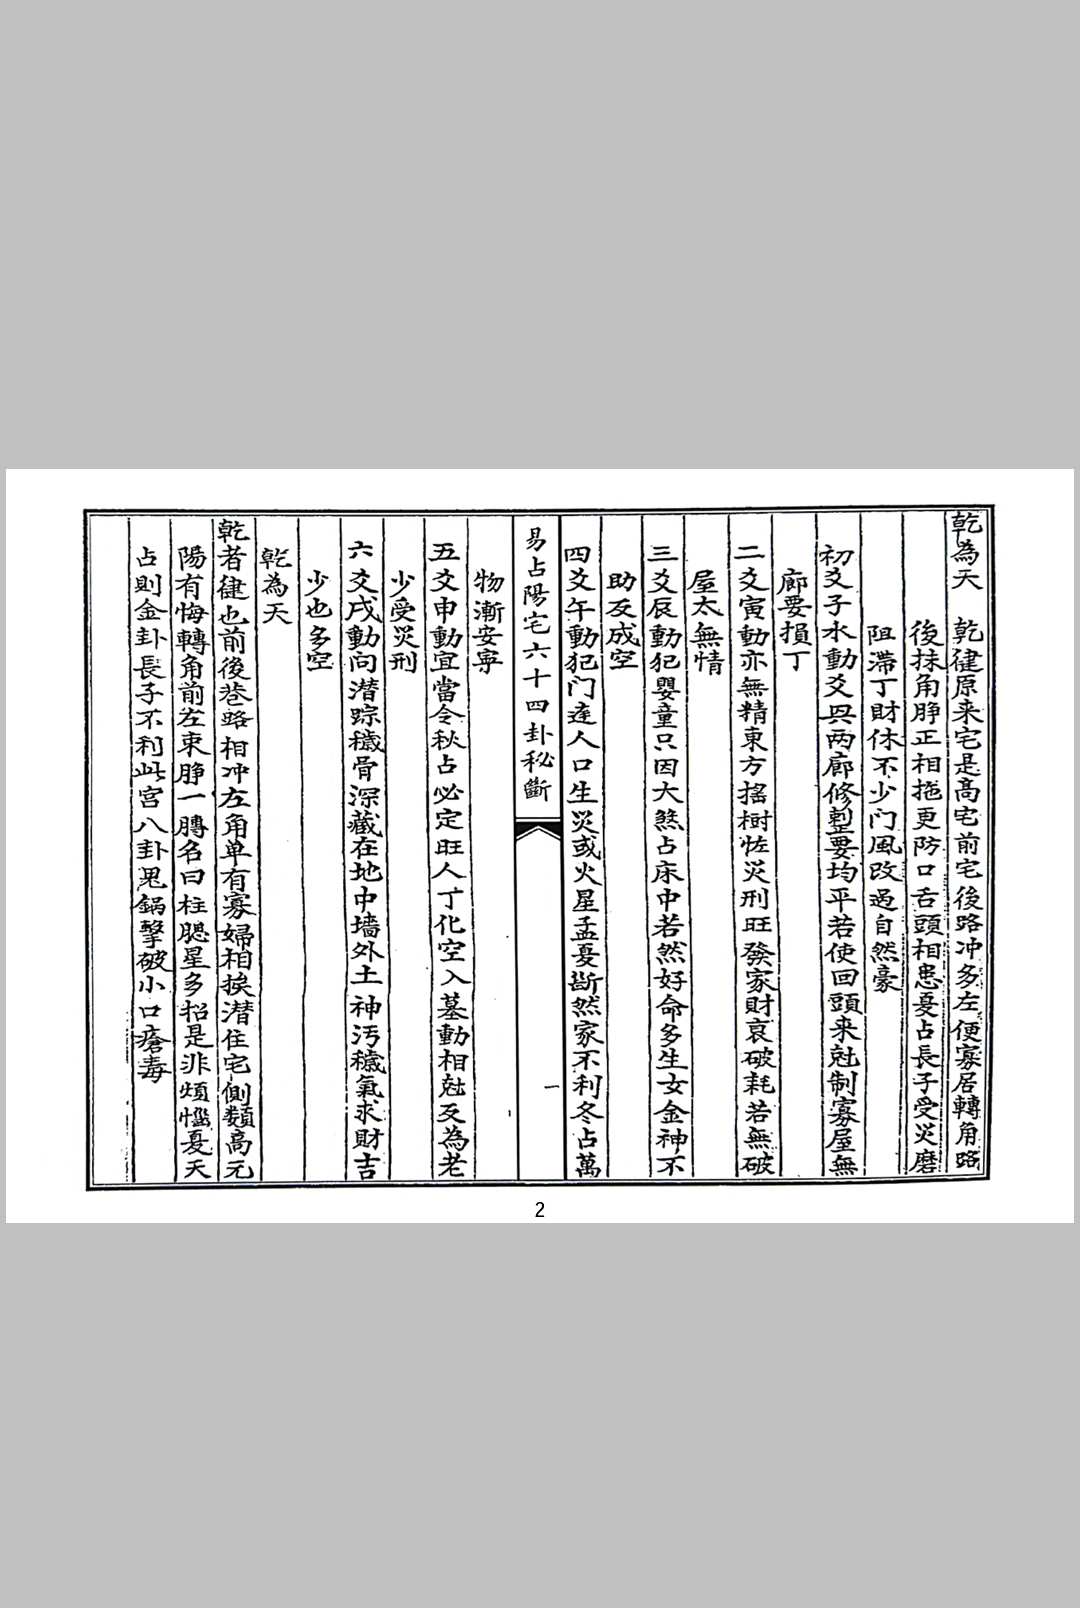 乾為天　乾健原来宅是高宅前宅後路冲多左便寡居轉角路
後抹角脖正相拖更防口舌頭相患憂占長子受災磨
阻滯丁財休不少门風改過自然豪
初爻子水動爻畏两廊修整要均平若使回頭来尅制寡屋無
廊要損丁
二爻寅動亦無精東方搖樹恠災刑旺發家財衰破耗若無破
屋太無情
三爻辰動犯嬰童只因大煞占床中若然好命多生女金神不
助反成空
四爻午動犯门逹人口生災或火星孟憂断然家不利冬占萬
易占陽宅六十四卦秘斷
一
物漸安寧
五爻申動宜當令秋占必定旺人丁化空入墓動相尅反為老
少受災刑
六爻戌動向潜踪穢骨深藏在地中墻外土神汚穢氣求財吉
少也多空
乾為天
乾者健也前後巷路相冲左角单有寡婦相挨潜住宅側類高元
陽有悔轉角前左東脖一膊名曰柱腮星多招是非煩惱憂天
占則金卦長子不利此宮八卦忌鍋擊破小口瘡毒
2